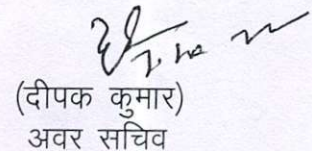 (दीपक कुमार)
अवर सचिव